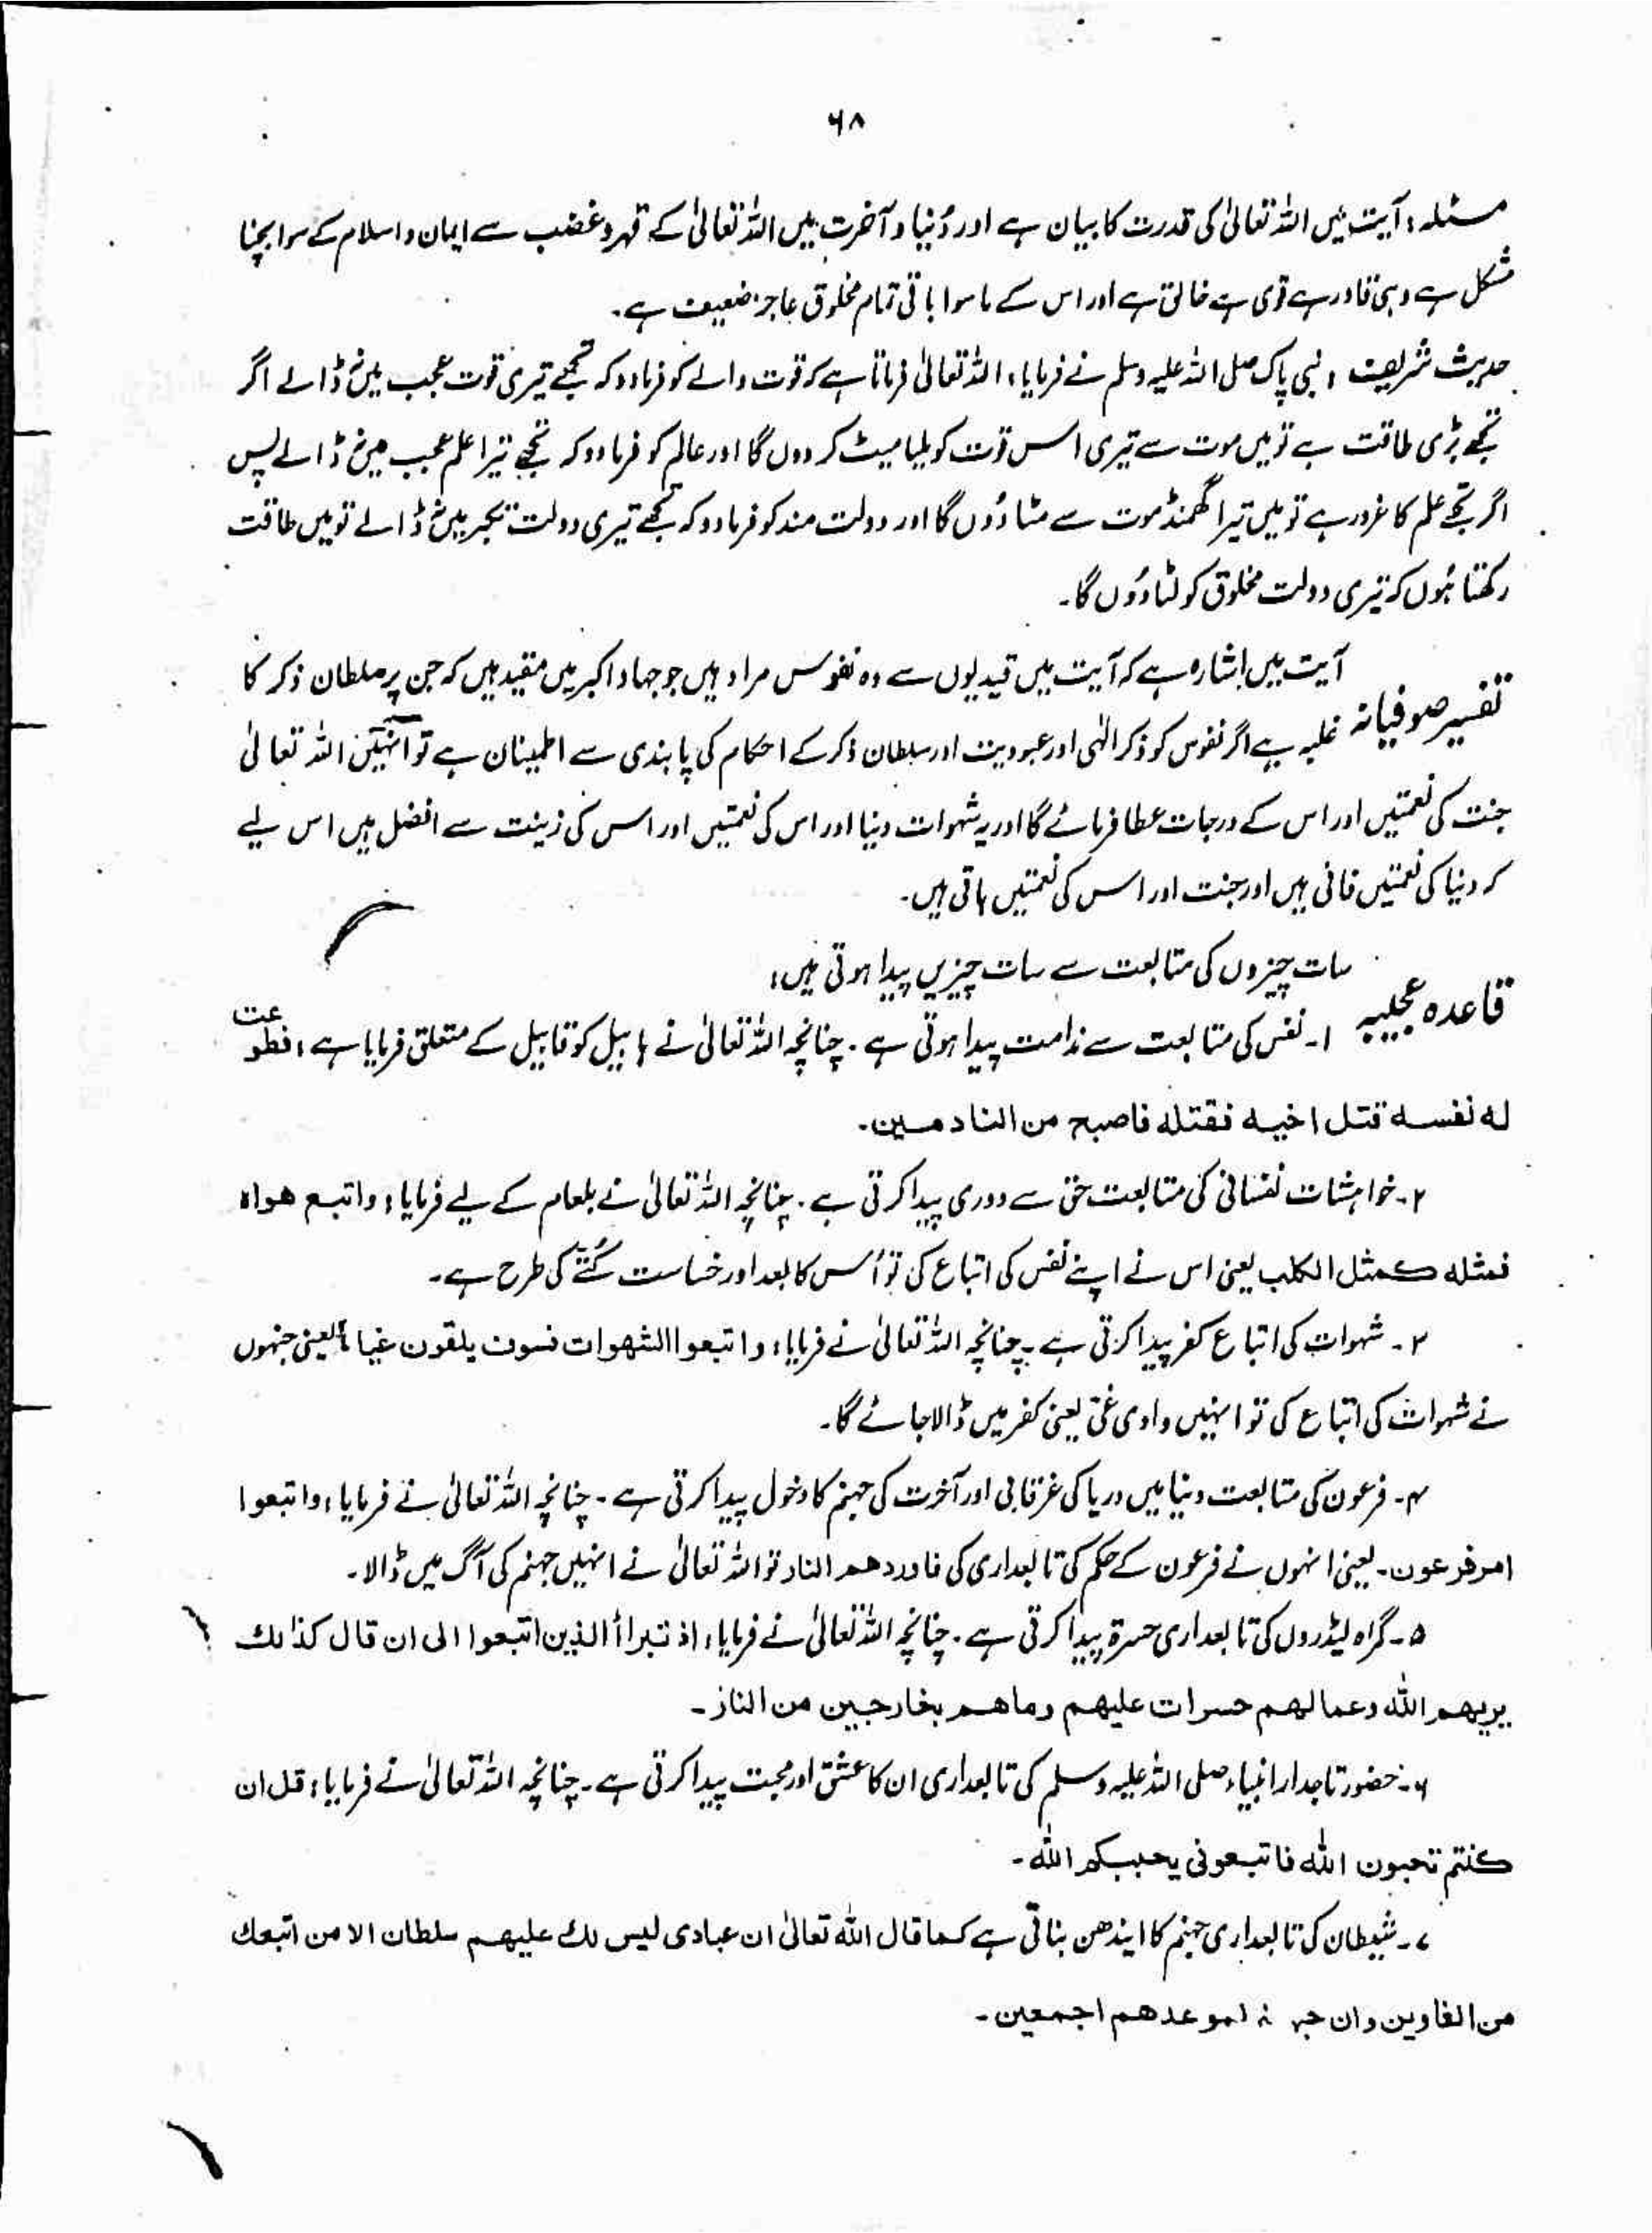 ۶۸
مسئلہ : آیت میں اللہ تعالیٰ کی قدرت کا بیان ہے اور دُنیا و آخرت میں اللہ تعالیٰ کے قہر و غضب سے ایمان و اسلام کے سوا بچنا
مشکل ہے وہی قادر ہے قوی ہے خالق ہے اور اس کے ماسوا باقی تمام مخلوق عاجز ضعیف ہے۔
حدیث شریف : نبی پاک صلی اللہ علیہ وسلم نے فرمایا : اللہ تعالیٰ فرماتا ہے کہ قوت والے کو فرما دو کہ تجھے تیری قوت عجب میں نہ ڈالے اگر
تجھے بڑی طاقت ہے تو میں موت سے تیری اس قوت کو ملیا میٹ کر دوں گا اور عالم کو فرما دو کہ تجھے تیرا علم عجب میں نہ ڈالے پس
اگر تجھے علم کا غرور ہے تو میں تیرا گھمنڈ موت سے مٹا دُوں گا اور دولت مند کو فرما دو کہ تجھے تیری دولت تکبر میں نہ ڈالے تو میں طاقت
رکھتا ہُوں کہ تیری دولت مخلوق کو لٹا دُوں گا۔
آیت میں اشارہ ہے کہ آیت میں قیدیوں سے وہ نفوس مراد ہیں جو جہاد اکبر میں مقید ہیں کہ جن پر سلطان ذکر کا
تفسیر صوفیانہ غلبہ ہے اگر نفوس کو ذکر الٰہی اور عبودیت اور سلطان ذکر کے احکام کی پابندی سے اطمینان ہے تو انہیں اللہ تعالیٰ
جنت کی نعمتیں اور اس کے درجات عطا فرمائے گا اور یہ شہوات دنیا اور اس کی نعمتیں اور اس کی زینت سے افضل ہیں اس لیے
کہ دنیا کی نعمتیں فانی ہیں اور جنت اور اس کی نعمتیں باقی ہیں۔
سات چیزوں کی متابعت سے سات چیزیں پیدا ہوتی ہیں :
قاعدہ عجیبہ ۱۔ نفس کی متابعت سے ندامت پیدا ہوتی ہے۔ چنانچہ اللہ تعالیٰ نے ہابیل کو قابیل کے متعلق فرمایا ہے : فطوعت
له نفسه قتل اخيه فقتله فاصبح من النادمين۔
۲۔ خواہشات نفسانی کی متابعت حق سے دوری پیدا کرتی ہے۔ چنانچہ اللہ تعالیٰ نے بلعام کے لیے فرمایا : واتبع هواه
فمثله كمثل الكلب یعنی اس نے اپنے نفس کی اتباع کی تو اُس کا بعد اور خساست کُتّے کی طرح ہے۔
۳۔ شہوات کی اتباع کفر پیدا کرتی ہے۔ چنانچہ اللہ تعالیٰ نے فرمایا : واتبعوا الشهوات فسوف يلقون غيا یعنی جنہوں
نے شہوات کی اتباع کی تو انہیں وادی غیّ یعنی کفر میں ڈالا جائے گا۔
۴۔ فرعون کی متابعت دنیا میں دریا کی غرقابی اور آخرت کی جہنم کا دخول پیدا کرتی ہے۔ چنانچہ اللہ تعالیٰ نے فرمایا : واتبعوا
امر فرعون۔ یعنی انہوں نے فرعون کے حکم کی تابعداری کی فاوردهم النار تو اللہ تعالیٰ نے انہیں جہنم کی آگ میں ڈالا۔
۵۔ گمراہ لیڈروں کی تابعداری حسرۃ پیدا کرتی ہے۔ چنانچہ اللہ تعالیٰ نے فرمایا : اذ تبرأ الذين اتبعوا الى ان قال كذالك
يريهم الله وعمالهم حسرات عليهم وماهم بخارجين من النار۔
۶۔ حضور تاجدار انبیاء صلی اللہ علیہ وسلم کی تابعداری ان کا عشق اور محبت پیدا کرتی ہے۔ چنانچہ اللہ تعالیٰ نے فرمایا : قل ان
كنتم تحبون الله فاتبعونى يحببكم الله۔
۷۔ شیطان کی تابعداری جہنم کا ایندھن بناتی ہے كما قال الله تعالىٰ ان عبادى ليس لك عليهم سلطان الا من اتبعك
من الغاوين وان لموعدهم اجمعين۔